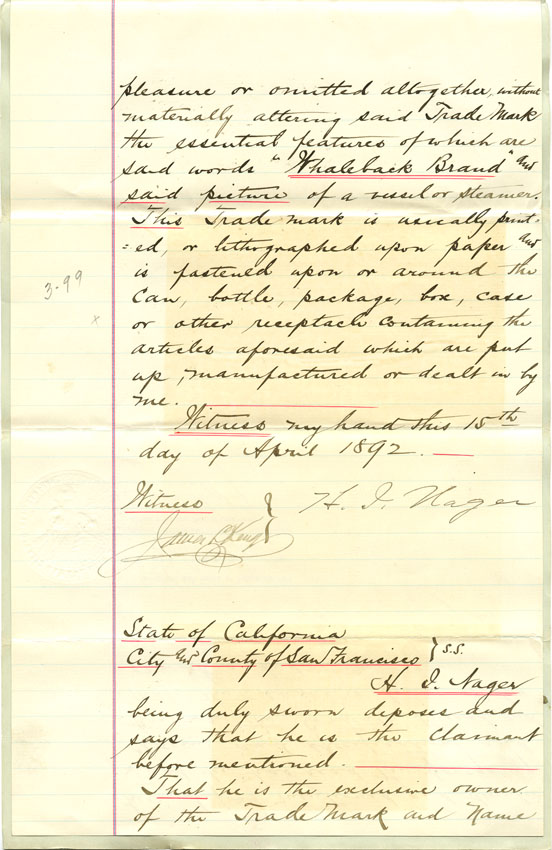 pleasure or omitted altogether, without
materially altering said Trade Mark
the essential features of which are
said words "Whaleback Brand" and
said picture of a vessel or steamer.
This Trade mark is usually print-
=ed, or lithographed upon paper and
is fastened upon or around the
Can, bottle, package, box, case
or other receptacle containing the
articles aforesaid which are put
up, manufactured or dealt in by
me.
Witness my hand this 15th
day of April 1892.
Witness } H. I. Nager
James
State of California
City and County of San Francisco } S.S.
H. I. Nager
being duly sworn deposes and
says that he is the Claimant
before mentioned.
That he is the exclusive owner
of the Trade Mark and Name
3.99
x